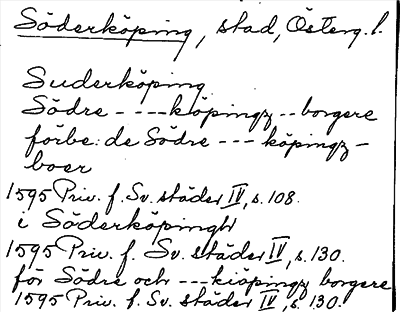 Söderköping, stad, Österg. l.
Suderköping
Södre - - - -köpingz - - borgere
förbe: de Södre - - - köpingz -
boer
1595 Priv. f. Sv. städer IV, s. 108.
i Söderköpingh
1595 Priv. f. Sv. städer IV, s. 130.
för Södre och - - -kiöpingz borgere
1595 Priv. f. Sv. städer IV, s. 130.